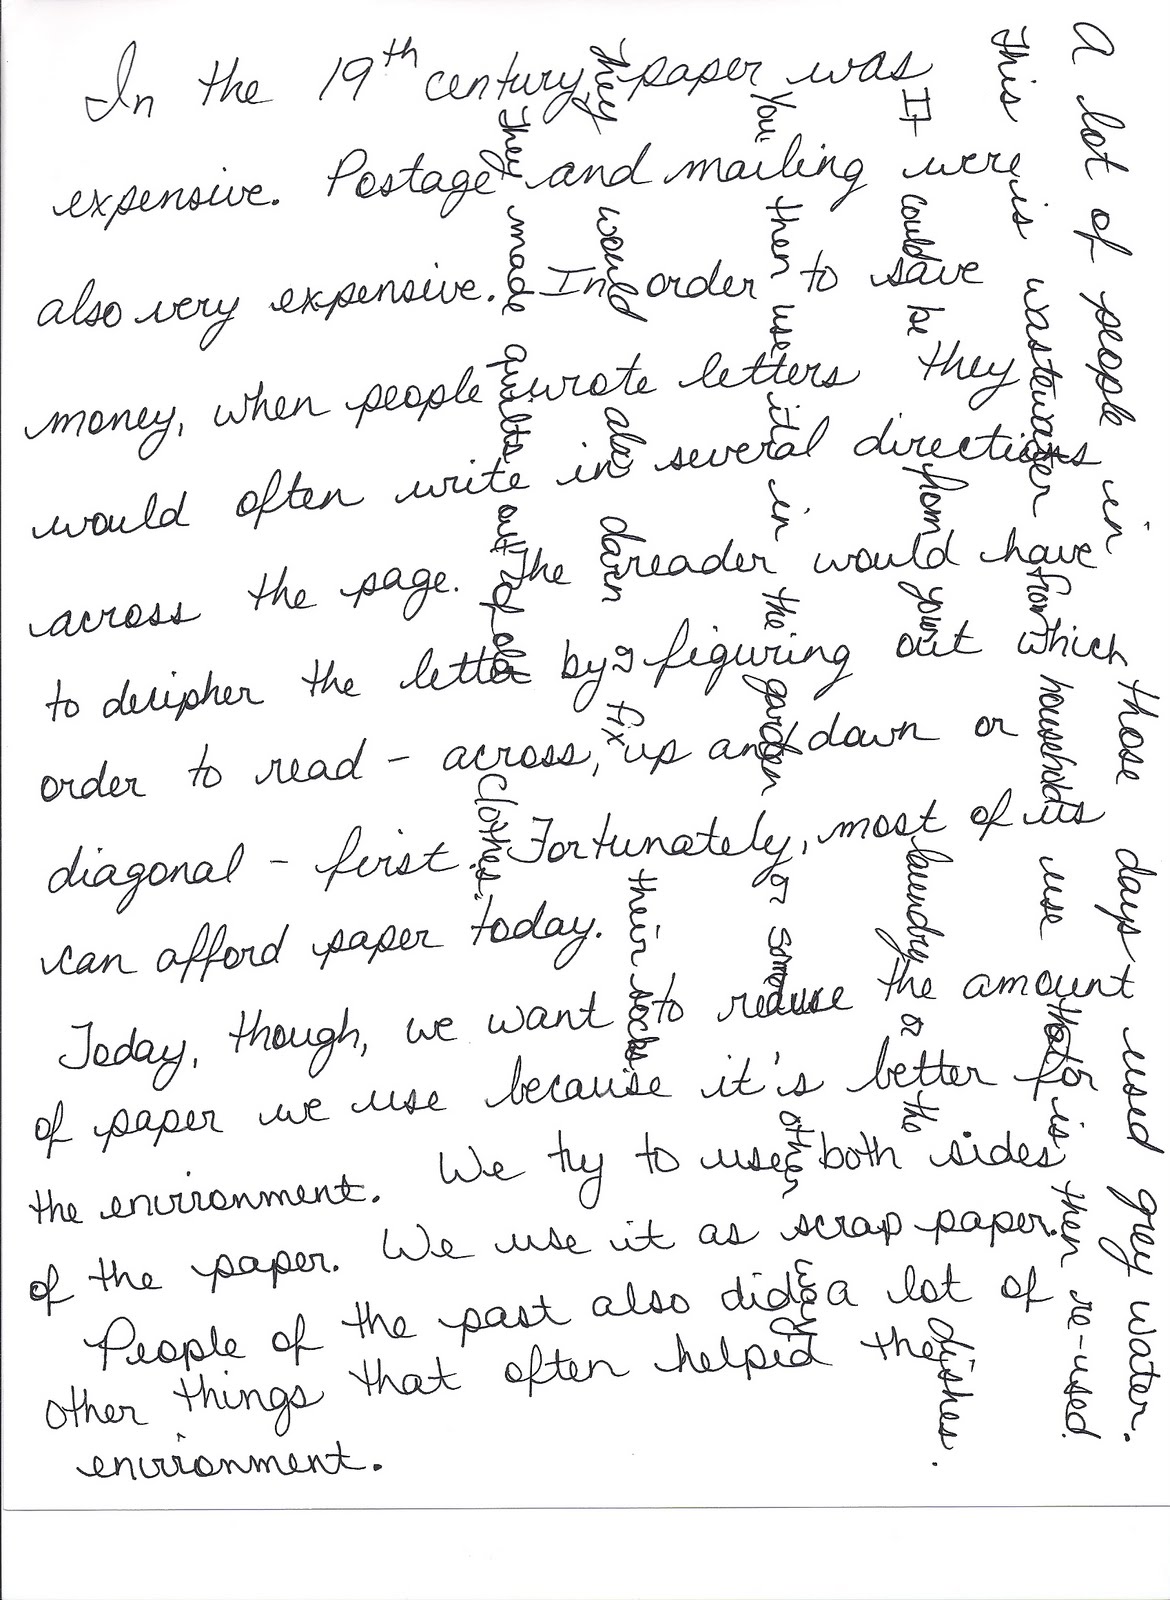 In the 19th century paper was
expensive. Postage and mailing were
also very expensive. In order to save
money, when people wrote letters they
would often write in several directions
across the page. The reader would have
to decipher the letter by figuring out which
order to read - across, up and down or
diagonal - first. Fortunately, most of us
can afford paper today.
Today, though, we want to reduse the amount
of paper we use because it's better for
the environment. We try to use both sides
of the paper. We use it as scrap paper.
People of the past also did a lot of
other things that often helped the
environment.
A lot of people in those days used grey water.
This is wastewater from household use that is then re-used.
It could be from your laundry or the dishes.
You then use it in the garden or some other way.
They would also darn & fix their socks.
They made quilts out of old clothes.